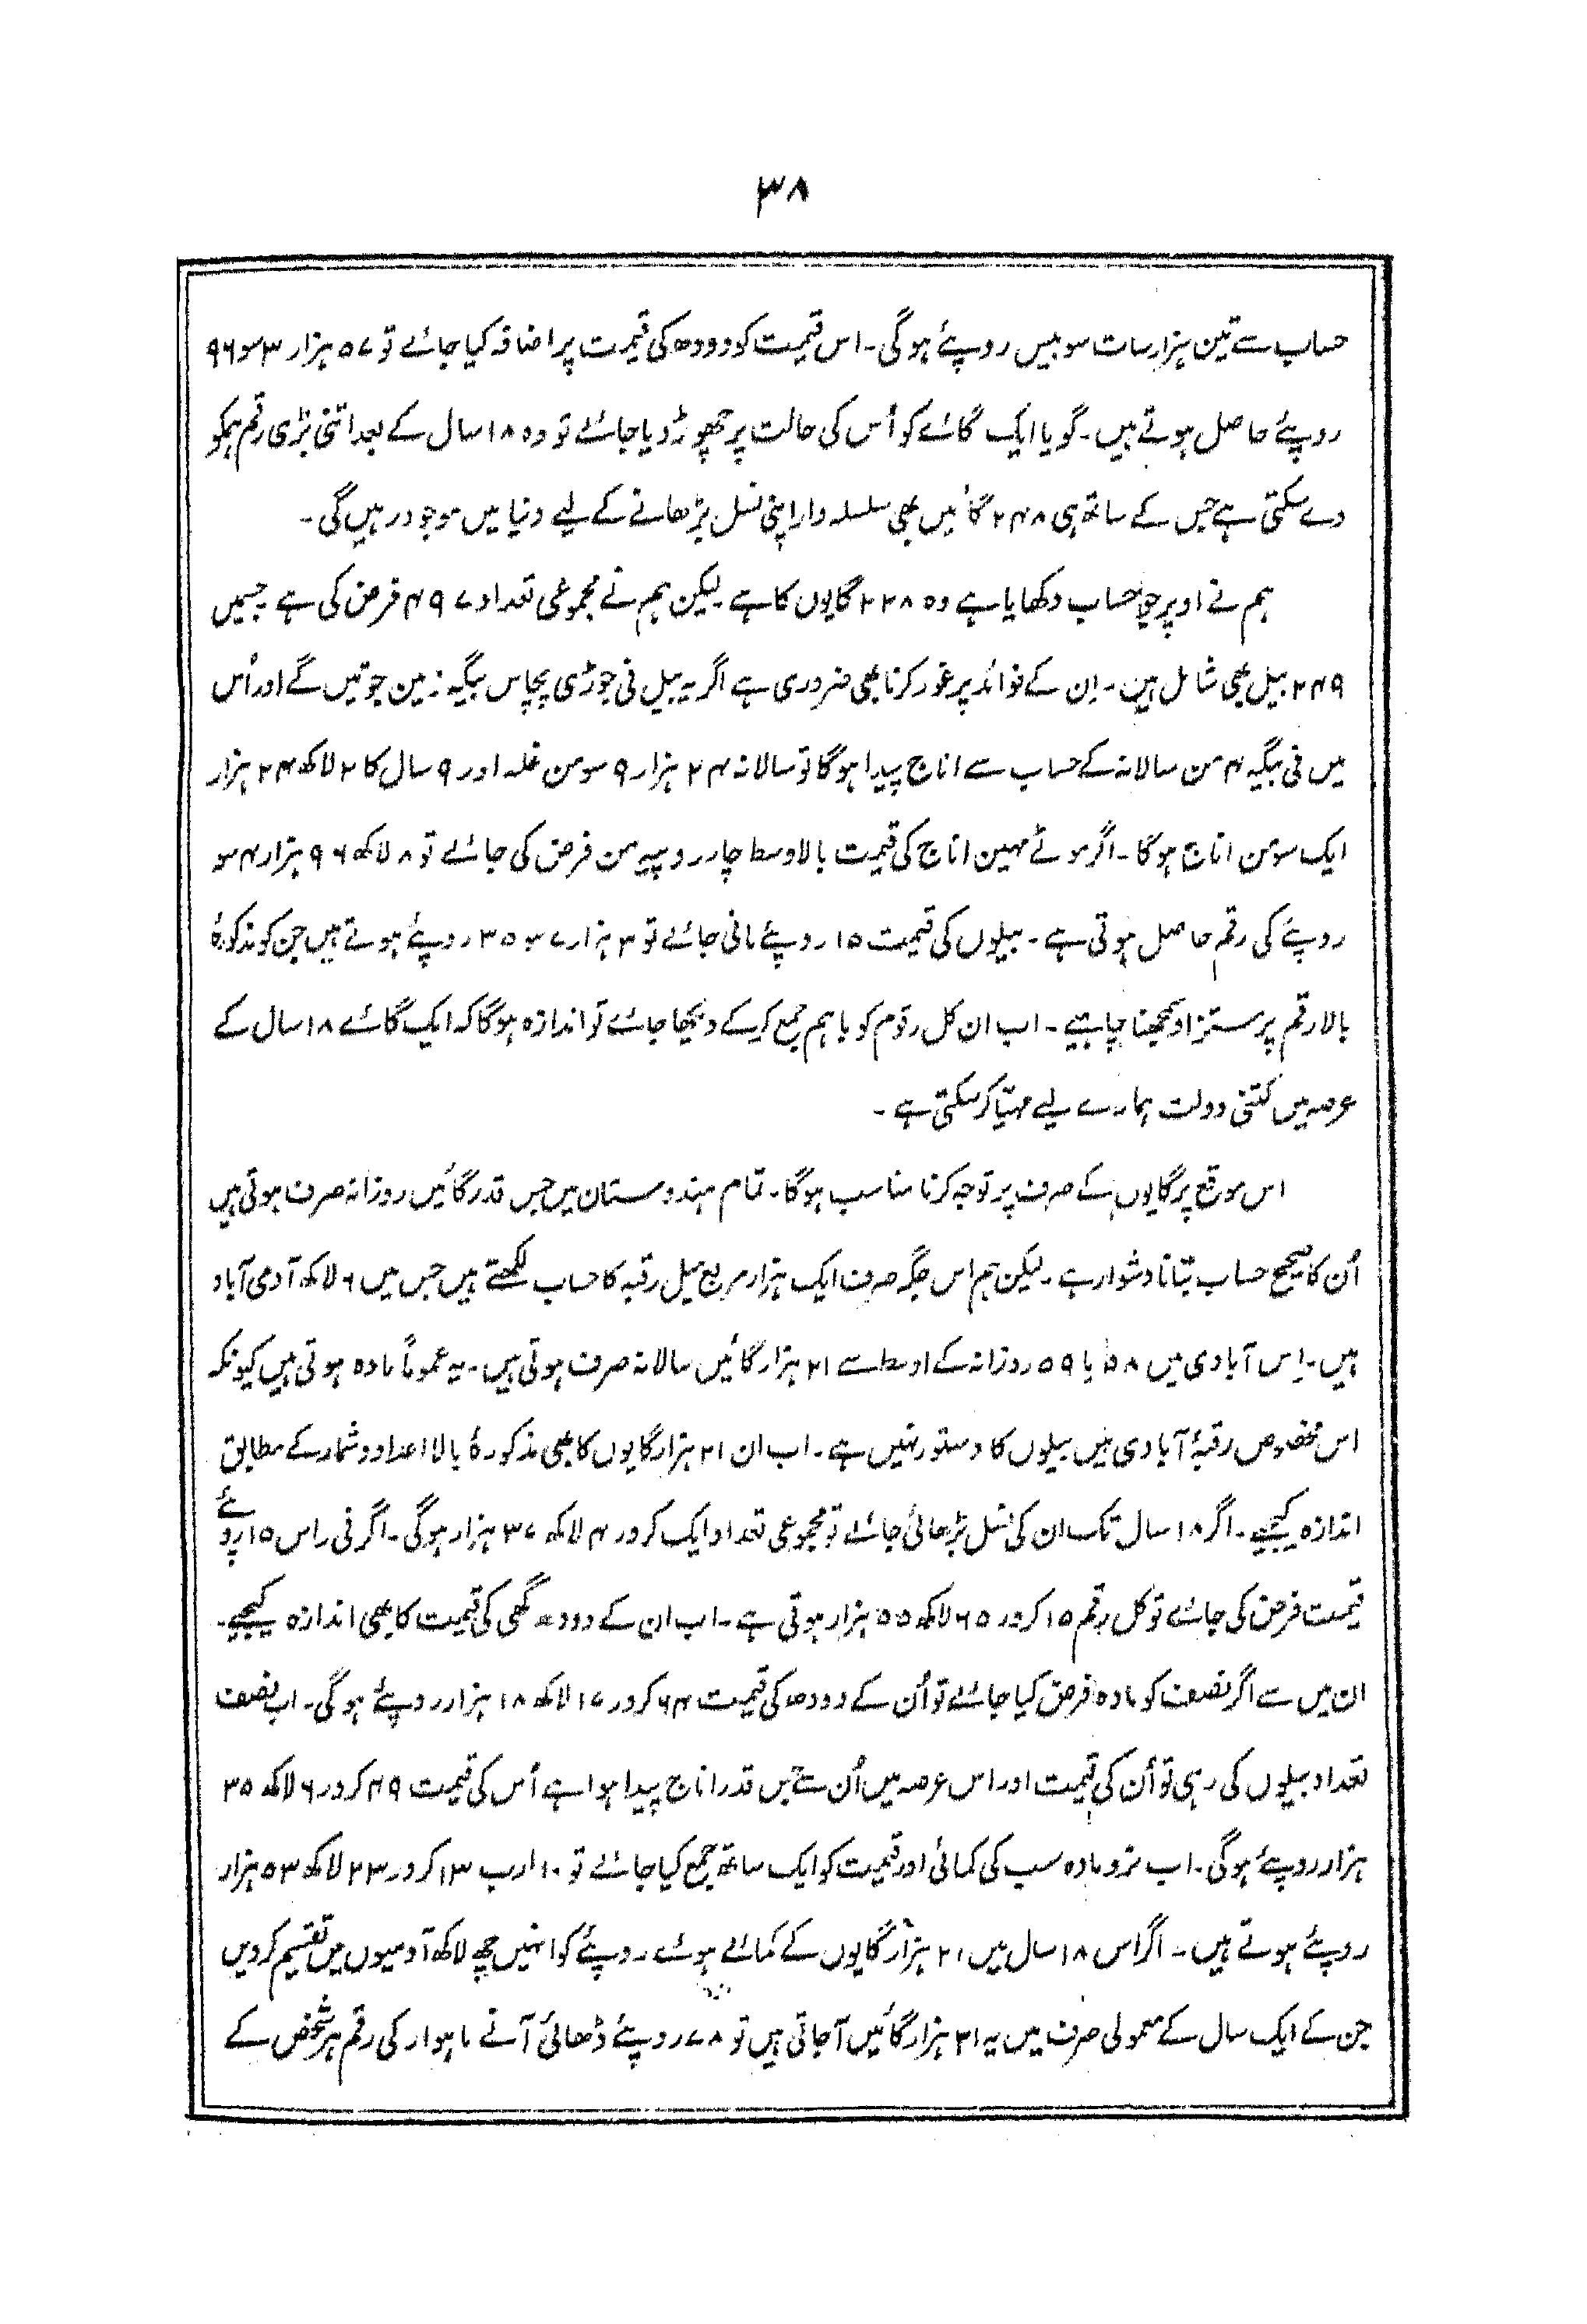 ۳۸
حساب سے تین ہزار سات سو بیس روپئے ہوگی۔ اس قیمت کو دودھ کی قیمت پر اضافہ کیا جائے تو ۵۷ ہزار ۳سو ۹۶
روپئے حاصل ہوتے ہیں۔ گویا ایک گائے کو اُس کی حالت پر چھوڑ دیا جائے تو وہ ۱۸ سال کے بعد اتنی بڑی رقم ہمکو
دے سکتی ہے جس کے ساتھ ہی ۲۴۸ گائیں بھی سلسلہ وار اپنی نسل بڑھانے کے لیے دنیا میں موجود رہیں گی۔
ہم نے اوپر جو حساب دکھایا ہے وہ ۲۲۸ گایوں کا ہے۔ لیکن ہم نے مجموعی تعداد ۴۹۷ فرض کی ہے جسمیں
۲۴۹ بیل بھی شامل ہیں۔ اِن کے فوائد پر غور کرنا بھی ضروری ہے اگر یہ بیل فی جوڑی پچاس بیگہ زمین جوتیں گے اور اُس
میں فی بیگہ ۴ من سالانہ کے حساب سے اناج پیدا ہوگا تو سالانہ ۲۴ ہزار ۹ سو من غلہ اور ۹ سال کا ۲ لاکھ ۲۴ ہزار
ایک سو من اناج ہوگا۔ اگر موٹے مہین اناج کی قیمت بالاوسط چار روپیہ من فرض کی جائے تو ۸ لاکھ ۹۶ ہزار ۴ سو
روپئے کی رقم حاصل ہوتی ہے۔ بیلوں کی قیمت ۱۵ روپئے مانی جائے تو ۳ ہزار ۷سو ۳۵ روپئے ہوتے ہیں جن کو مذکورۂ
بالا رقم پر مستزاد سمجھنا چاہیے۔ اب ان کل رقوم کو باہم جمع کرکے دیکھا جائے تو اندازہ ہوگا کہ ایک گائے ۱۸ سال کے
عرصہ میں کتنی دولت ہمارے لیے مہیّا کرسکتی ہے۔
اس موقع پر گایوں کے صرف پر توجہ کرنا مناسب ہوگا۔ تمام ہندوستان میں جس قدر گائیں روزانہ صرف ہوتی ہیں
اُن کا صحیح حساب بتانا دشوار ہے۔ لیکن ہم اس جگہ صرف ایک ہزار مربع میل رقبہ کا حساب لکھتے ہیں جس میں ۶ لاکھ آدمی آباد
ہیں۔ اِس آبادی میں ۵۸ یا ۵۹ روزانہ کے اوسط سے ۲۱ ہزار گائیں سالانہ صرف ہوتی ہیں۔ یہ عموماً مادہ ہوتی ہیں کیونکہ
اس مخصوص رقبۂ آبادی میں بیلوں کا دستور نہیں ہے۔ اب ان ۲۱ ہزار گایوں کا بھی مذکورۂ بالا اعداد و شمار کے مطابق
اندازہ کیجیے۔ اگر ۱۸ سال تک ان کی نسل بڑھائی جائے تو مجموعی تعداد ایک کرور ۴ لاکھ ۳۷ ہزار ہوگی۔ اگر فی راس ۱۵ روپئے
قیمت فرض کی جائے تو کل رقم ۱۵ کرور ۶۵ لاکھ ۵۵ ہزار ہوتی ہے۔ اب ان کے دودھ گھی کی قیمت کا بھی اندازہ کیجیے۔
ان میں سے اگر نصف کو مادہ فرض کیا جائے تو اُن کے دودھ کی قیمت ۶۴ کرور ۱۷ لاکھ ۱۸ ہزار روپئے ہوگی۔ اب نصف
تعداد بیلوں کی رہی تو اُن کی قیمت اور اس عرصہ میں اُن سے جس قدر اناج پیدا ہوا ہے اُس کی قیمت ۴۹ کرور ۶ لاکھ ۳۵
ہزار روپئے ہوگی۔ اب نر و مادہ سب کی کمائی اور قیمت کو ایک ساتھ جمع کیا جائے تو ۱۰ ارب ۱۳ کرور ۲۳ لاکھ ۵۳ ہزار
روپئے ہوتے ہیں۔ اگر اس ۱۸ سال میں ۲۱ ہزار گایوں کے کمائے ہوئے روپئے کو انہیں چھ لاکھ آدمیوں میں تقسیم کردیں
جن کے ایک سال کے معمولی صرف میں یہ ۲۱ ہزار گائیں آجاتی ہیں تو ۷۸ روپئے ڈھائی آنے ماہوار کی رقم ہر شخص کے